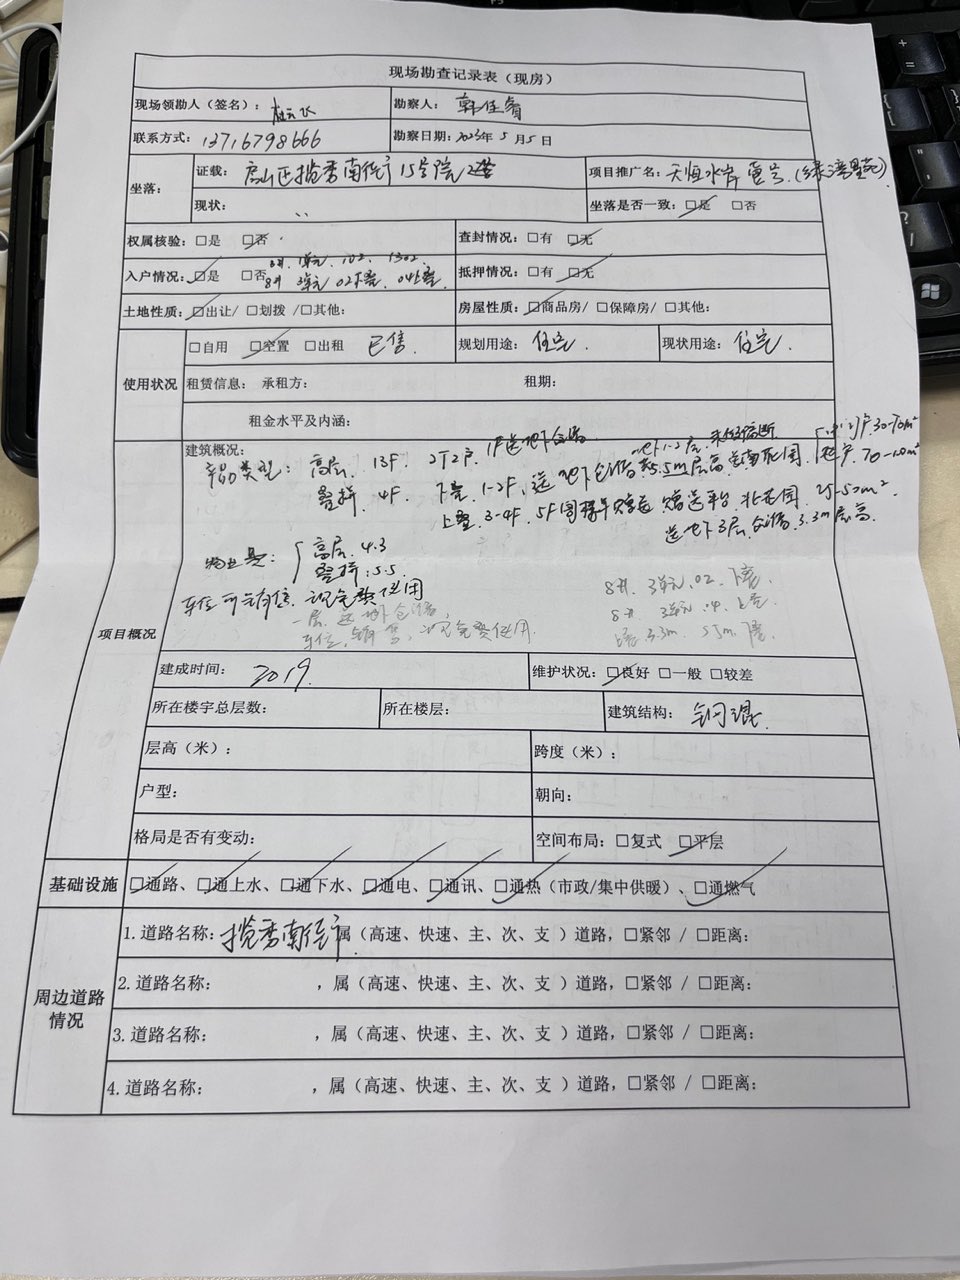 现场勘查记录表（现房）
现场领勘人（签名）： 勘察人：
联系方式：13716798666 勘察日期：2023年5月5日
坐落： 证载：房山区揽秀南街15号院 项目推广名：天恒水岸壹号（绿湾星苑）
现状： 坐落是否一致：☑是 □否
权属核验：□是 ☑否 查封情况：□有 ☑无
8# 1单元.102. 1302
入户情况：☑是 □否 8# 3单元 02下叠. 04上叠. 抵押情况：□有 ☑无
土地性质：☑出让/ □划拨 /□其他： 房屋性质：☑商品房/ □保障房/ □其他：
使用状况 □自用 ☑空置 □出租 已售. 规划用途：住宅. 现状用途：住宅.
租赁信息： 承租方： 租期：
租金水平及内涵：
项目概况
建筑概况：
产品类型：高层. 13F. 2T2户. 1F送地下仓储. 地下1-2层 30-70m²
叠拼. 4F. 下叠. 1-2F, 送地下仓储 5.5m层高 送南花园. 70-100m²
上叠. 3-4F. 5F 赠送平台. 北花园. 25-50m².
送地下3层仓储. 3.3m层高.
物业费：高层. 4.3
叠拼：5.5
车位 可云有信. 现免费使用
一层. 送地下仓储.
车位. 销售. 现免费使用.
8# 3单元.02. 下叠.
8# 3单元.04. 上叠.
上叠 3.3m. 5.5m. 下叠.
建成时间：2019. 维护状况：☑良好 □一般 □较差
所在楼宇总层数： 所在楼层： 建筑结构：钢混.
层高（米）： 跨度（米）：
户型： 朝向：
格局是否有变动： 空间布局：□复式 ☑平层
基础设施 ☑通路、☑通上水、☑通下水、☑通电、☑通讯、☑通热（市政/集中供暖）、☑通燃气
周边道路情况
1. 道路名称：揽秀南街，属（高速、快速、主、次、支 ）道路，□紧邻 / □距离：
2. 道路名称： ，属（高速、快速、主、次、支 ）道路，□紧邻 / □距离：
3. 道路名称： ，属（高速、快速、主、次、支 ）道路，□紧邻 / □距离：
4. 道路名称： ，属（高速、快速、主、次、支 ）道路，□紧邻 / □距离：